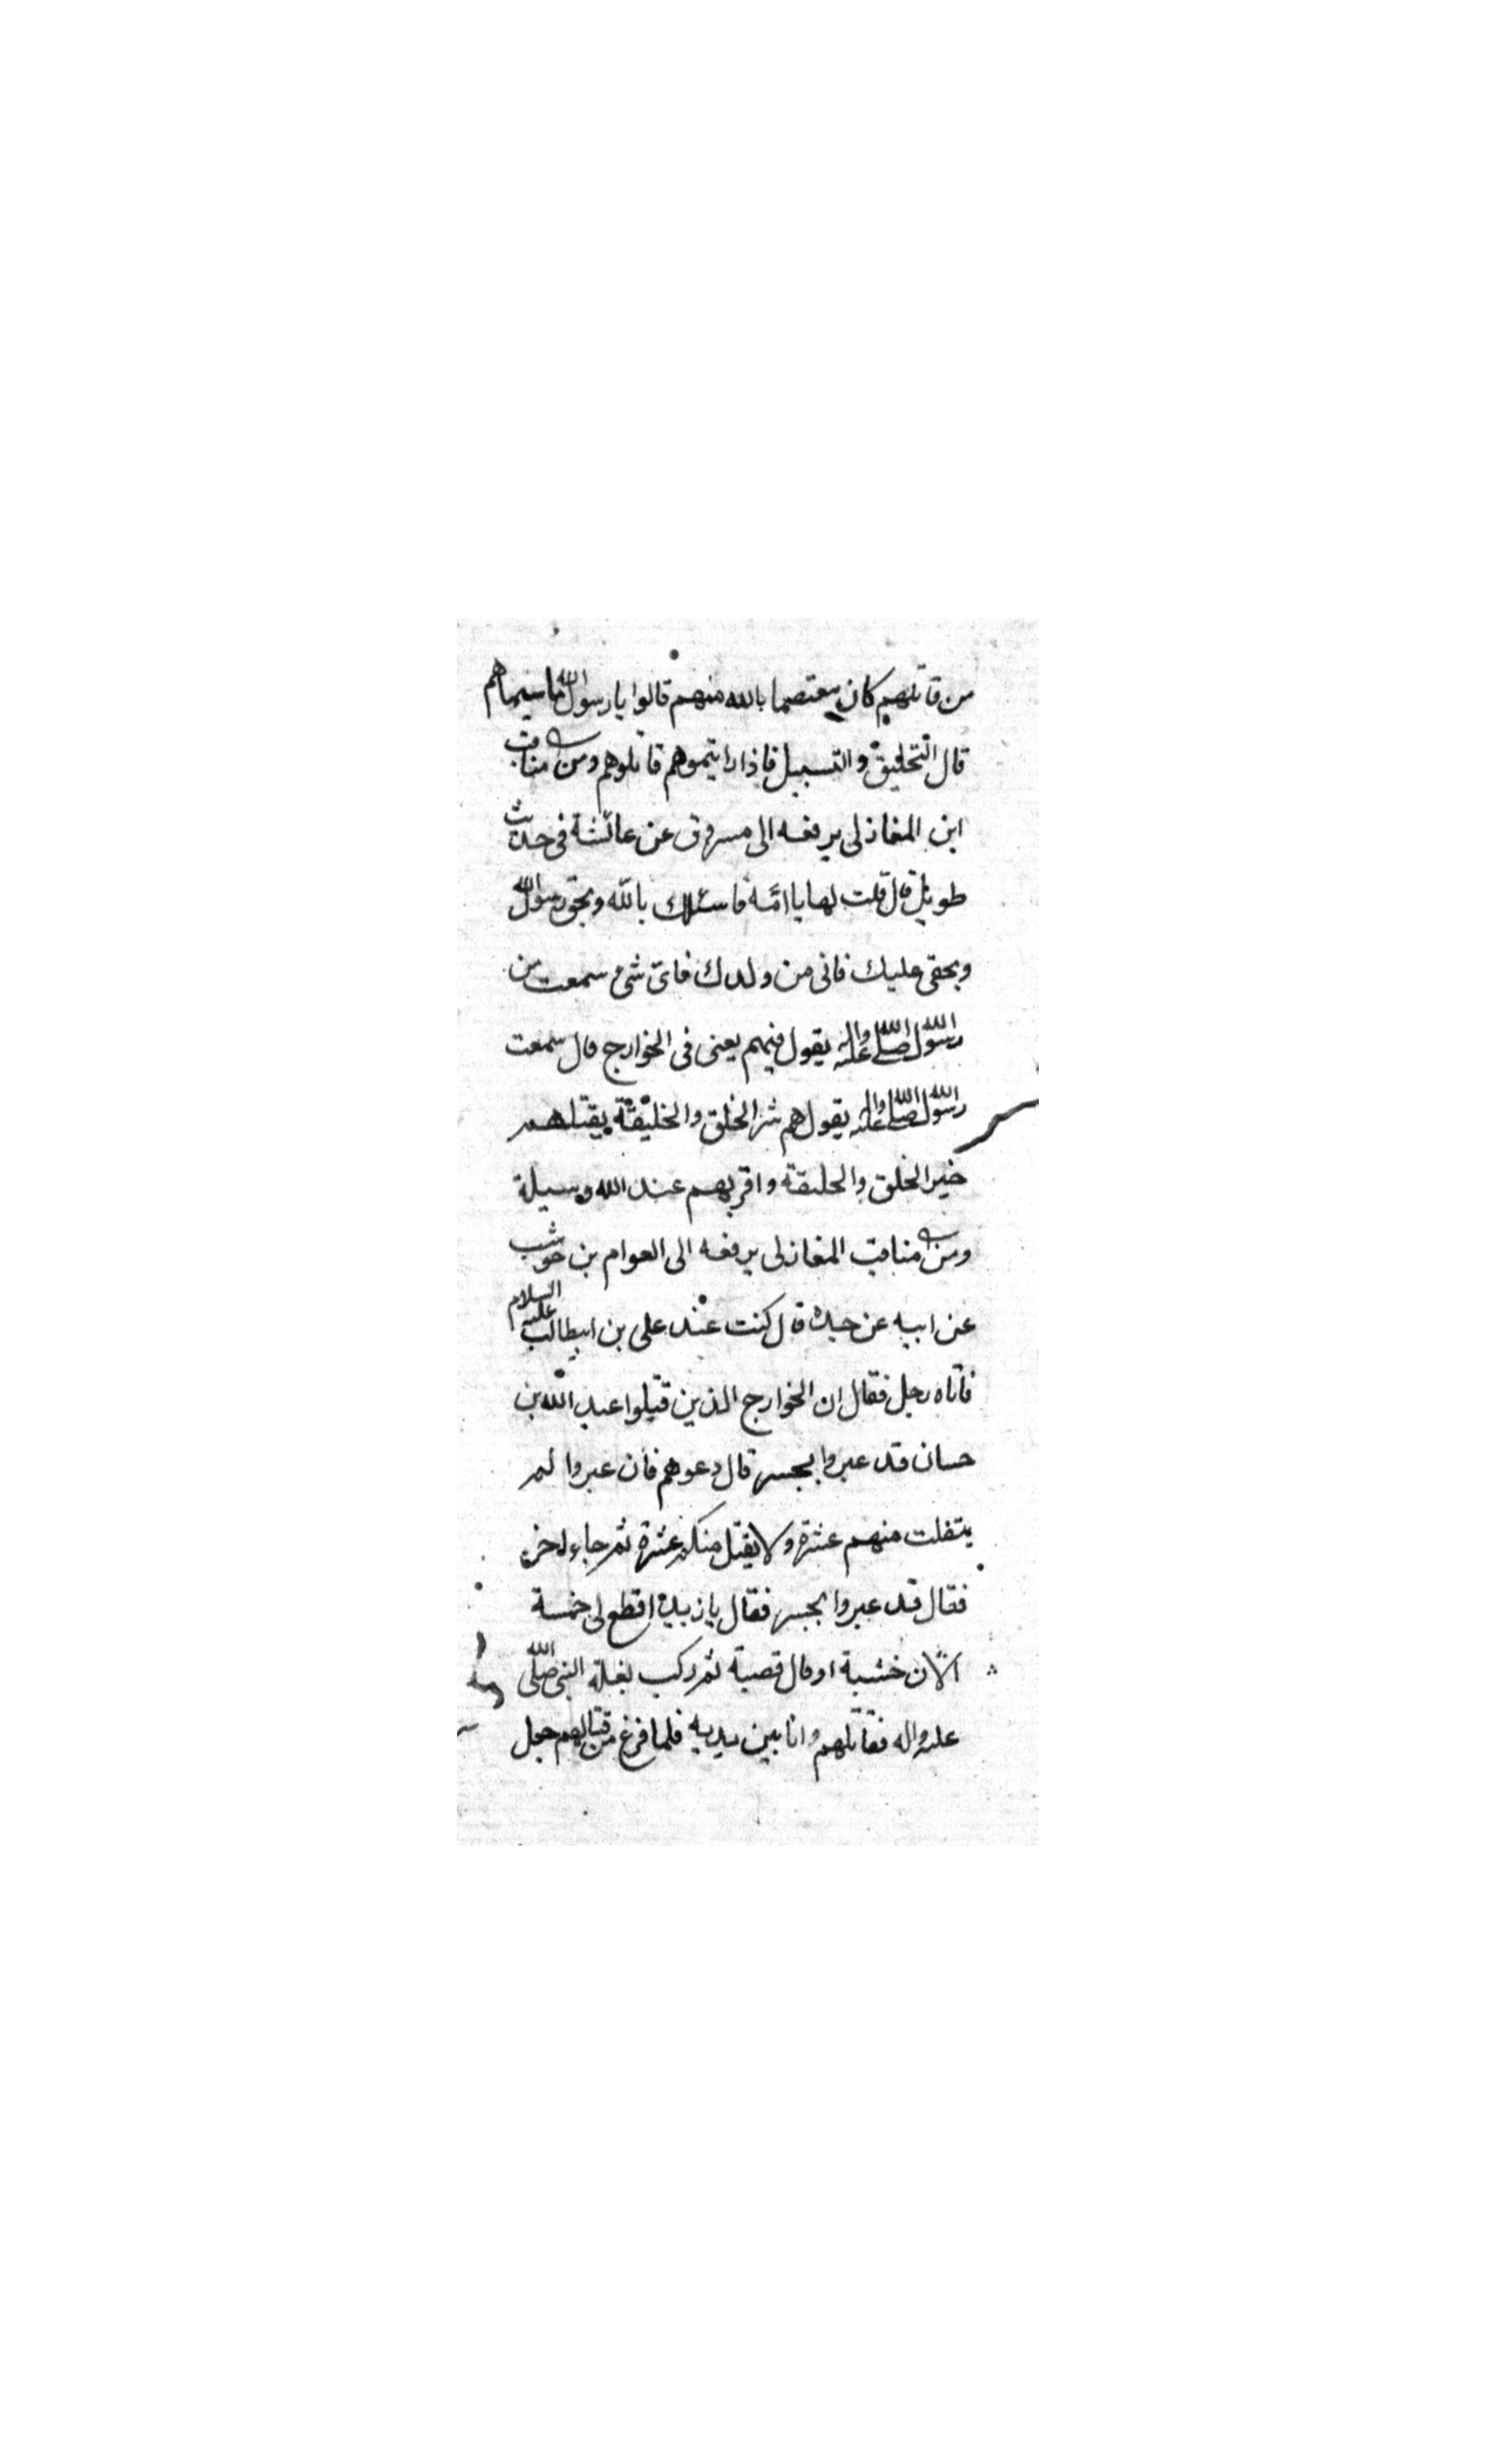 من قاتلهم كان معتصما بالله منهم قالوا يا رسول الله ما سيماهم
قال التحليق والتسبيل فاذا رايتموهم قاتلوهم ومن مناقب
ابن المغازلى يرفعه الى مسروق عن عائشة فى حديث
طويل قال قلت لها يا امّه فاسئلك بالله وبحق رسول الله
وبحقى عليك فانى من ولدك فاىّ شئ سمعت من
رسول الله صلى الله عليه واله يقول فيهم يعنى فى الخوارج قال سمعت
رسول الله صلى الله عليه واله يقول هم شر الخلق والخليقة يقتلهم
خير الخلق والخليقة واقربهم عند الله وسيلة
ومن مناقب المغازلى يرفعه الى العوام بن حوشب
عن ابيه عن جده قال كنت عند على بن ابيطالب عليه السلام
فاتاه رجل فقال ان الخوارج الذين قتلوا عبد الله بن
حسان قد عبروا الجسر قال دعوهم فان عبروا لم
يتفلت منهم عشرة ولا يقتل منكم عشرة ثم جاء اخر
فقال قد عبروا الجسر فقال يا زيد اقطع لى خمسة
الان خشبة او قال قصبة ثم ركب بغلة النبى صلى الله
عليه واله فقاتلهم وانا بين يديه فلما فرغ من قتالهم جعل